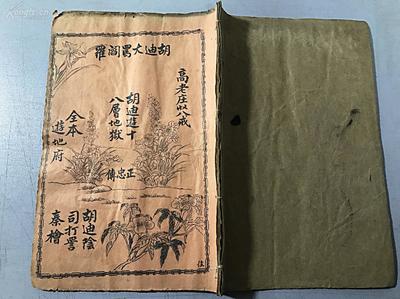 胡迪大罵閻羅
高老庄收八戒
胡迪遊十
八層地獄
全本
遊地府
正忠傳
胡迪陰
司打詈
秦檜